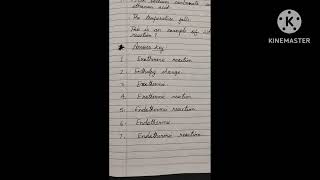 ethanoic acid
The temperature falls.
This is an example of
reaction ?
Answer key
1. Exothermic reaction
2. Enthalpy change
3. Exothermic
4. Exothermic reaction
5. Endothermic reaction
6. Endothermic
7. Endothermic reaction
KINEMASTER